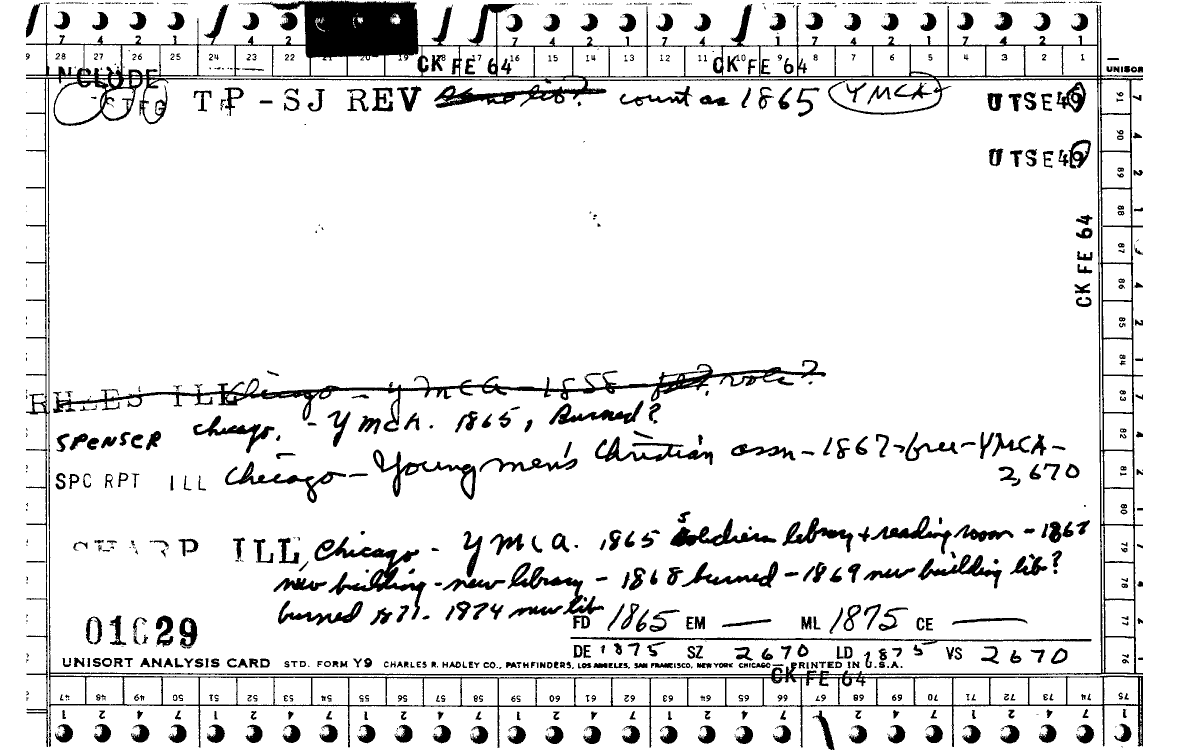 7 4 2 1 7 4 2 1 7 4 2 1 7 4 2 1 7 4 2 1
28 27 26 25 24 23 16 15 14 13 12 11 10 9 8 7 6 5 4 3 2 1
CK FE 64 CK FE 64 UNISOR
INCLUDE
TP-SJ REV count as 1865 YMCA UTSE49
UTSE49
CK FE 64
91 90 89 88 87 86 85 84 83 82 81 80 79 78 77 76
RHEES ILL Chicago - YMCA - 1858 - vols?
SPENSER Chicago. - YMCA. 1865, Burned?
SPC RPT ILL Chicago - Young men's Christian assn - 1867 - free - YMCA -
2,670
SHARP ILL, Chicago - YMCA. 1865 Soldiers library + reading room - 1867
new building - new library - 1868 burned - 1869 new building lib?
burned 1871. 1874 new lib
FD 1865 EM — ML 1875 CE —
01629
DE 1875 SZ 2670 LD 1875 VS 2670
UNISORT ANALYSIS CARD STD. FORM Y9 CHARLES R. HADLEY CO., PATHFINDERS, LOS ANGELES, SAN FRANCISCO, NEW YORK CHICAGO — PRINTED IN U.S.A.
CK FE 64
47 48 49 50 51 52 53 54 55 56 57 58 59 60 61 62 63 64 65 66 67 68 69 70 71 72 73 74 75
1 2 4 7 1 2 4 7 1 2 4 7 1 2 4 7 1 2 4 7 1 2 4 7 1 2 4 7 1